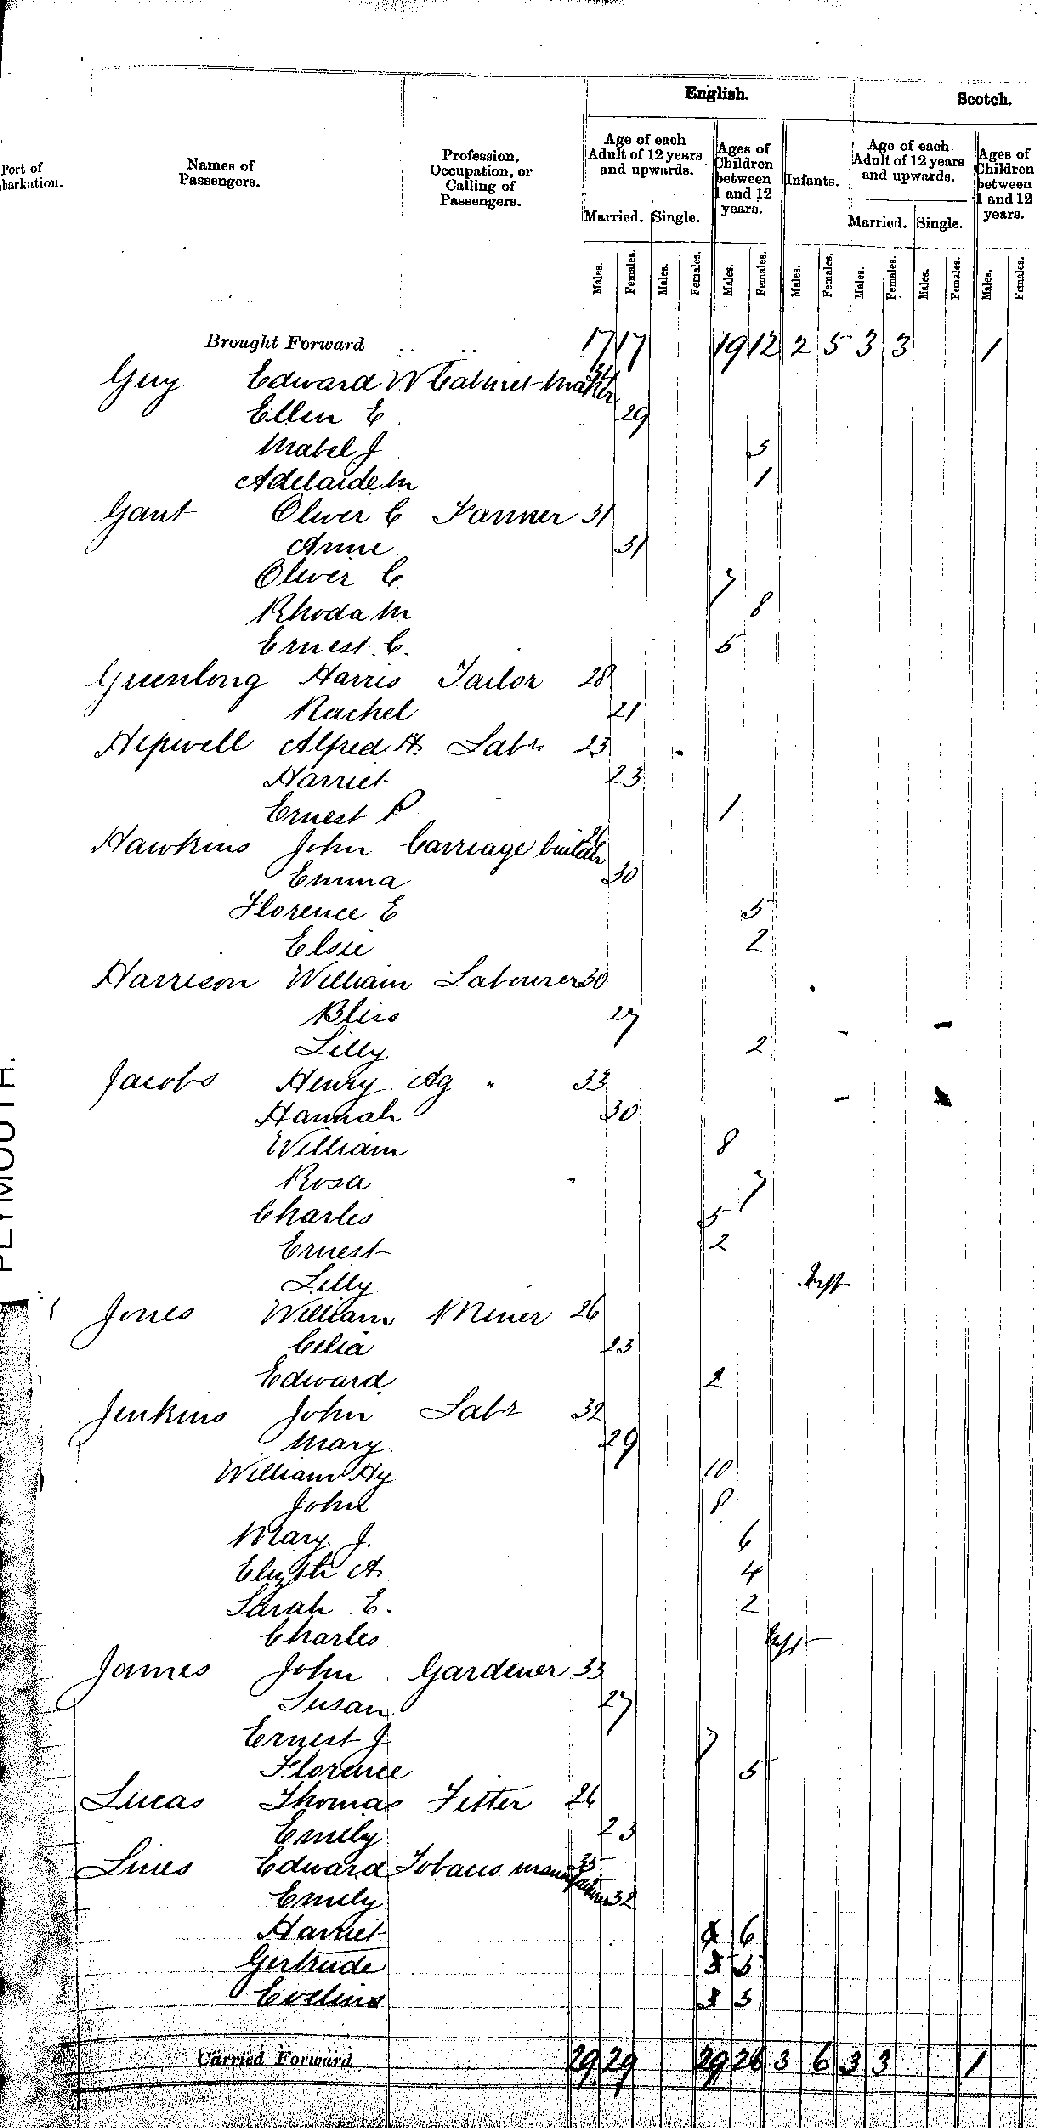 English.
Scotch.
Port of
barkation.
Names of
Passengers.
Profession,
Occupation, or
Calling of
Passengers.
Age of each
Adult of 12 years
and upwards.
Ages of
Children
between
1 and 12
years.
Infants.
Age of each
Adult of 12 years
and upwards.
Ages of
Children
between
1 and 12
years.
Married. Single.
Married. Single.
Males. Females. Males. Females. Males. Females. Males. Females. Males. Females. Males. Females. Males. Females.
Brought Forward .. .. 17 17 19 12 2 5 3 3 1
Guy Edward W Cabinet Maker
Ellen E 29
Mabel J 5
Adelaide M 1
Gant Oliver C Farmer 31
Anne 31
Oliver C. 7
Rhoda M 8
Ernest C. 5
Greenlong Harris Tailor 28
Rachel 21
Hipwell Alfred H Labr 23
Harriet 23
Ernest P 1
Hawkins John Carriage builder 26
Emma 30
Florence E 5
Elsie 2
Harrison William Labourer 30
Bliss 27
Lilly 2
Jacobs Henry Ag " 33
Hannah 30
William 8
Rosa 7
Charles 5
Ernest 2
Lilly Inft
Jones William Miner 26
Celia 23
Edward 2
Jenkins John Labr 32
Mary 29
William Hy 10
John 8
Mary J. 6
Elizbth A 4
Sarah E. 2
Charles Inft
James John Gardener 33
Susan 27
Ernest J 7
Florence 5
Lucas Thomas Fitter 26
Emily 23
Lines Edward Tobacco 35
Emily 32
Harriet 6
Gertrude 5
Evelina 3
Carried Forward 29 29 29 26 3 6 3 3 1
PLYMOUTH.